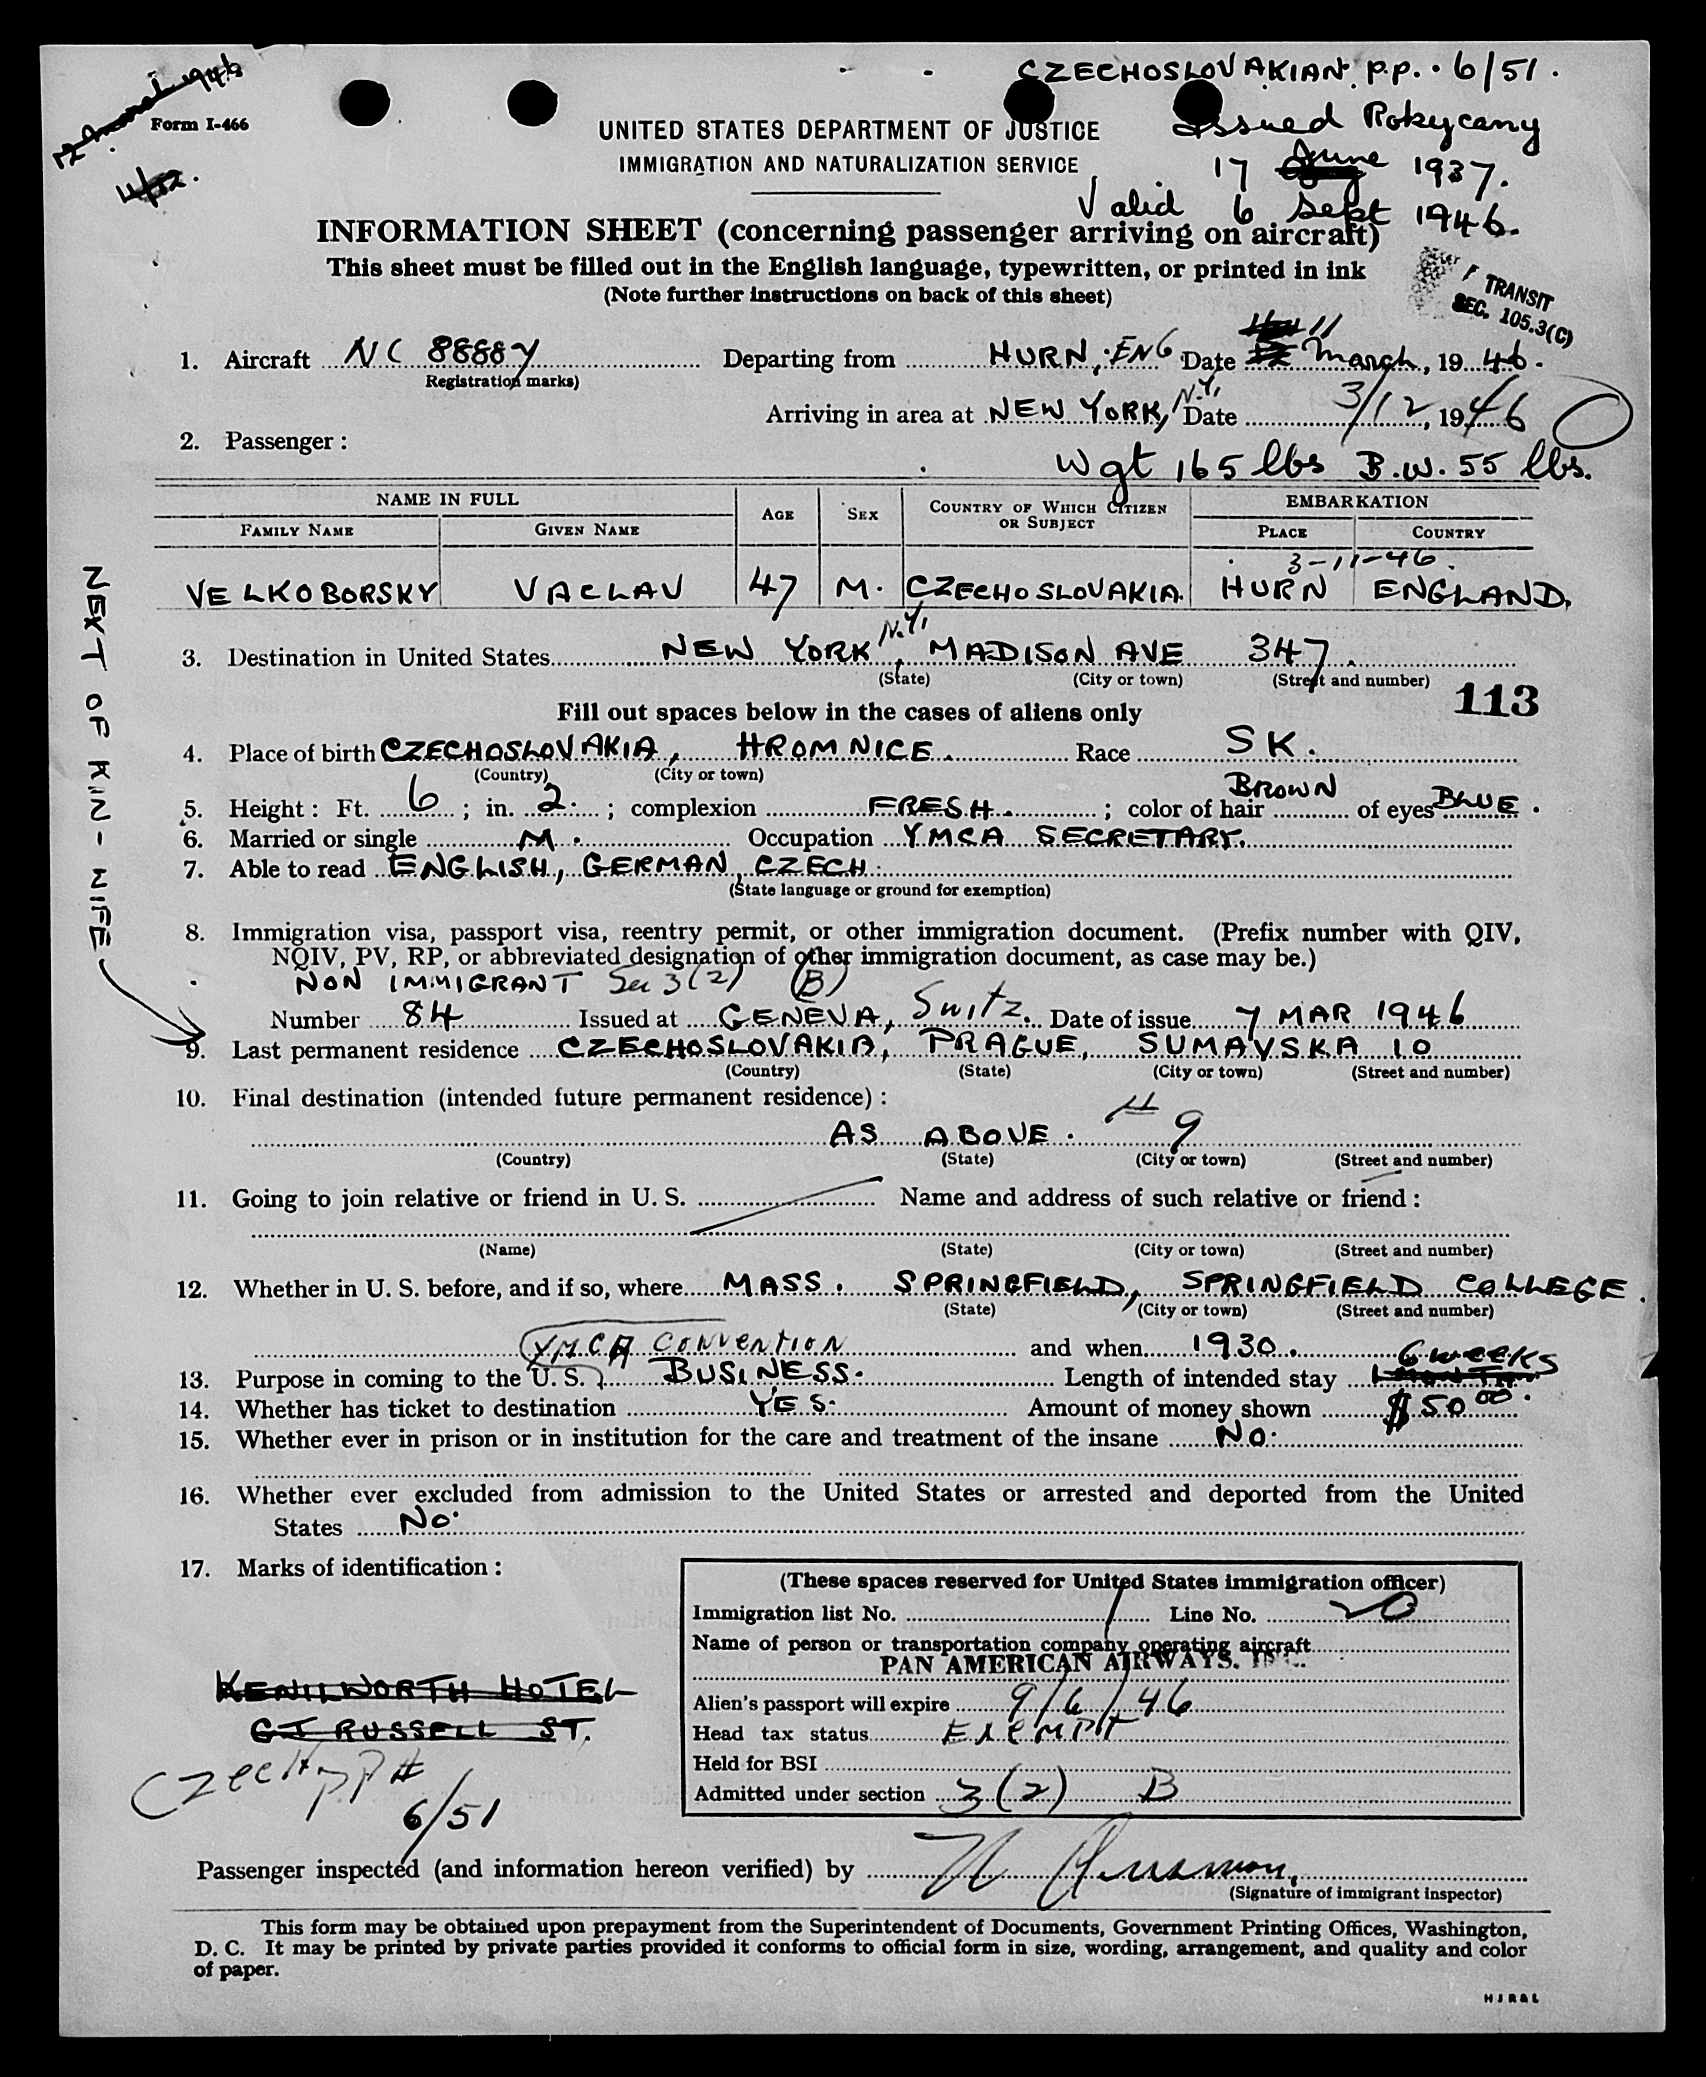 CZECHOSLOVAKIAN. P.P. 6/51.
Form I-466
4/52.
UNITED STATES DEPARTMENT OF JUSTICE
Issued Rokycany
IMMIGRATION AND NATURALIZATION SERVICE
17 June 1937.
Valid 6 Sept 1946.
INFORMATION SHEET (concerning passenger arriving on aircraft)
This sheet must be filled out in the English language, typewritten, or printed in ink
(Note further instructions on back of this sheet)
TRANSIT
SEC. 105.3(C)
1. Aircraft NC 88887 Departing from HURN, ENG Date 11 March, 1946.
(Registration marks)
Arriving in area at NEW YORK, N.Y. Date 3/12, 1946
2. Passenger:
Wgt 165 lbs B.W. 55 lbs.
NAME IN FULL AGE SEX COUNTRY OF WHICH CITIZEN OR SUBJECT EMBARKATION
FAMILY NAME GIVEN NAME PLACE COUNTRY
3-11-46.
VELKOBORSKY VACLAV 47 M. CZECHOSLOVAKIA. HURN ENGLAND.
NEXT OF KIN - WIFE
3. Destination in United States NEW YORK N.Y., MADISON AVE 347.
(State) (City or town) (Street and number)
113
Fill out spaces below in the cases of aliens only
4. Place of birth CZECHOSLOVAKIA, HROMNICE. Race SK.
(Country) (City or town)
5. Height: Ft. 6; in. 2.; complexion FRESH.; color of hair BROWN of eyes BLUE.
6. Married or single M. Occupation YMCA SECRETARY.
7. Able to read ENGLISH, GERMAN, CZECH.
(State language or ground for exemption)
8. Immigration visa, passport visa, reentry permit, or other immigration document. (Prefix number with QIV,
NQIV, PV, RP, or abbreviated designation of other immigration document, as case may be.)
NON IMMIGRANT Sec 3(2) (B)
Number 84 Issued at GENEVA, Switz. Date of issue 7 MAR 1946
9. Last permanent residence CZECHOSLOVAKIA, PRAGUE, SUMAVSKA 10
(Country) (State) (City or town) (Street and number)
10. Final destination (intended future permanent residence):
AS ABOVE. # 9
(Country) (State) (City or town) (Street and number)
11. Going to join relative or friend in U. S. Name and address of such relative or friend:
(Name) (State) (City or town) (Street and number)
12. Whether in U. S. before, and if so, where MASS. SPRINGFIELD, SPRINGFIELD COLLEGE.
(State) (City or town) (Street and number)
YMCA CONVENTION and when 1930.
13. Purpose in coming to the U. S. BUSINESS. Length of intended stay 6 WEEKS
14. Whether has ticket to destination YES. Amount of money shown $50 00.
15. Whether ever in prison or in institution for the care and treatment of the insane NO.
16. Whether ever excluded from admission to the United States or arrested and deported from the United
States NO.
17. Marks of identification:
(These spaces reserved for United States immigration officer)
Immigration list No. 1 Line No. 20
Name of person or transportation company operating aircraft
PAN AMERICAN AIRWAYS, INC.
Alien's passport will expire 9/6/46
Head tax status EXEMPT
Held for BSI
Admitted under section 3(2) B
KENILWORTH HOTEL
GT RUSSELL ST.
Czech pp #
6/51
Passenger inspected (and information hereon verified) by
(Signature of immigrant inspector)
This form may be obtained upon prepayment from the Superintendent of Documents, Government Printing Offices, Washington,
D. C. It may be printed by private parties provided it conforms to official form in size, wording, arrangement, and quality and color
of paper.